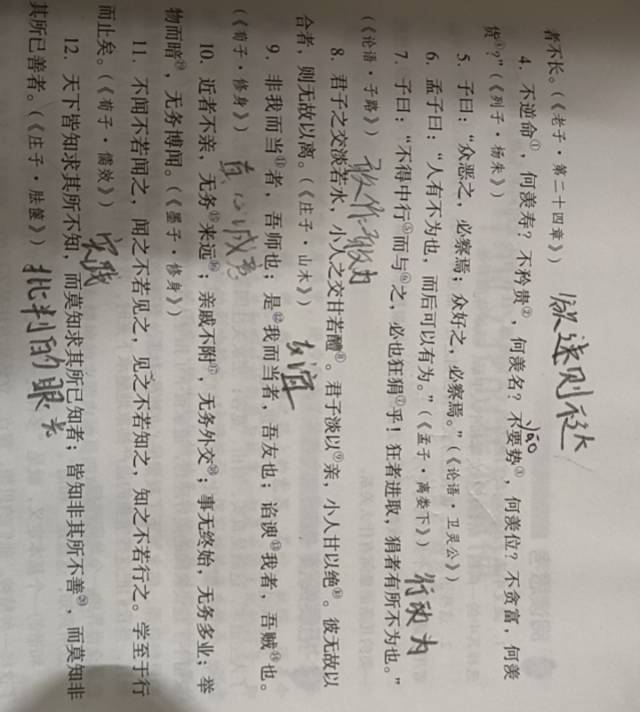 者不长。(《老子·第二十四章》)
欲速则不达
4．不逆命①，何羡寿？不矜贵②，何羡名？不要势③，何羡位？不贪富，何羡
yāo
货④？”(《列子·杨朱》)
5．子曰：“众恶之，必察焉；众好之，必察焉。”(《论语·卫灵公》)
6．孟子曰：“人有不为也，而后可以有为。”(《孟子·离娄下》)
7．子曰：“不得中行⑤而与⑥之，必也狂狷⑦乎！狂者进取，狷者有所不为也。”
(《论语·子路》)
敢作敢为
8．君子之交淡若水，小人之交甘若醴⑧。君子淡以⑨亲，小人甘以绝⑩。彼无故以
合者，则无故以离。(《庄子·山木》)
友谊
9．非我而当⑪者，吾师也；是⑫我而当者，吾友也；谄谀⑬我者，吾贼⑭也。
(《荀子·修身》)
真心诚意
10．近者不亲，无务⑮来远⑯；亲戚不附⑰，无务外交⑱；事无终始，无务多业；举
物而暗⑲，无务博闻。(《墨子·修身》)
11．不闻不若闻之，闻之不若见之，见之不若知之，知之不若行之。学至于行
而止矣。(《荀子·儒效》)
实践
12．天下皆知求其所不知，而莫知求其所已知者；皆知非其所不善⑳，而莫知非
其所已善者。(《庄子·胠箧》)
批判的眼光